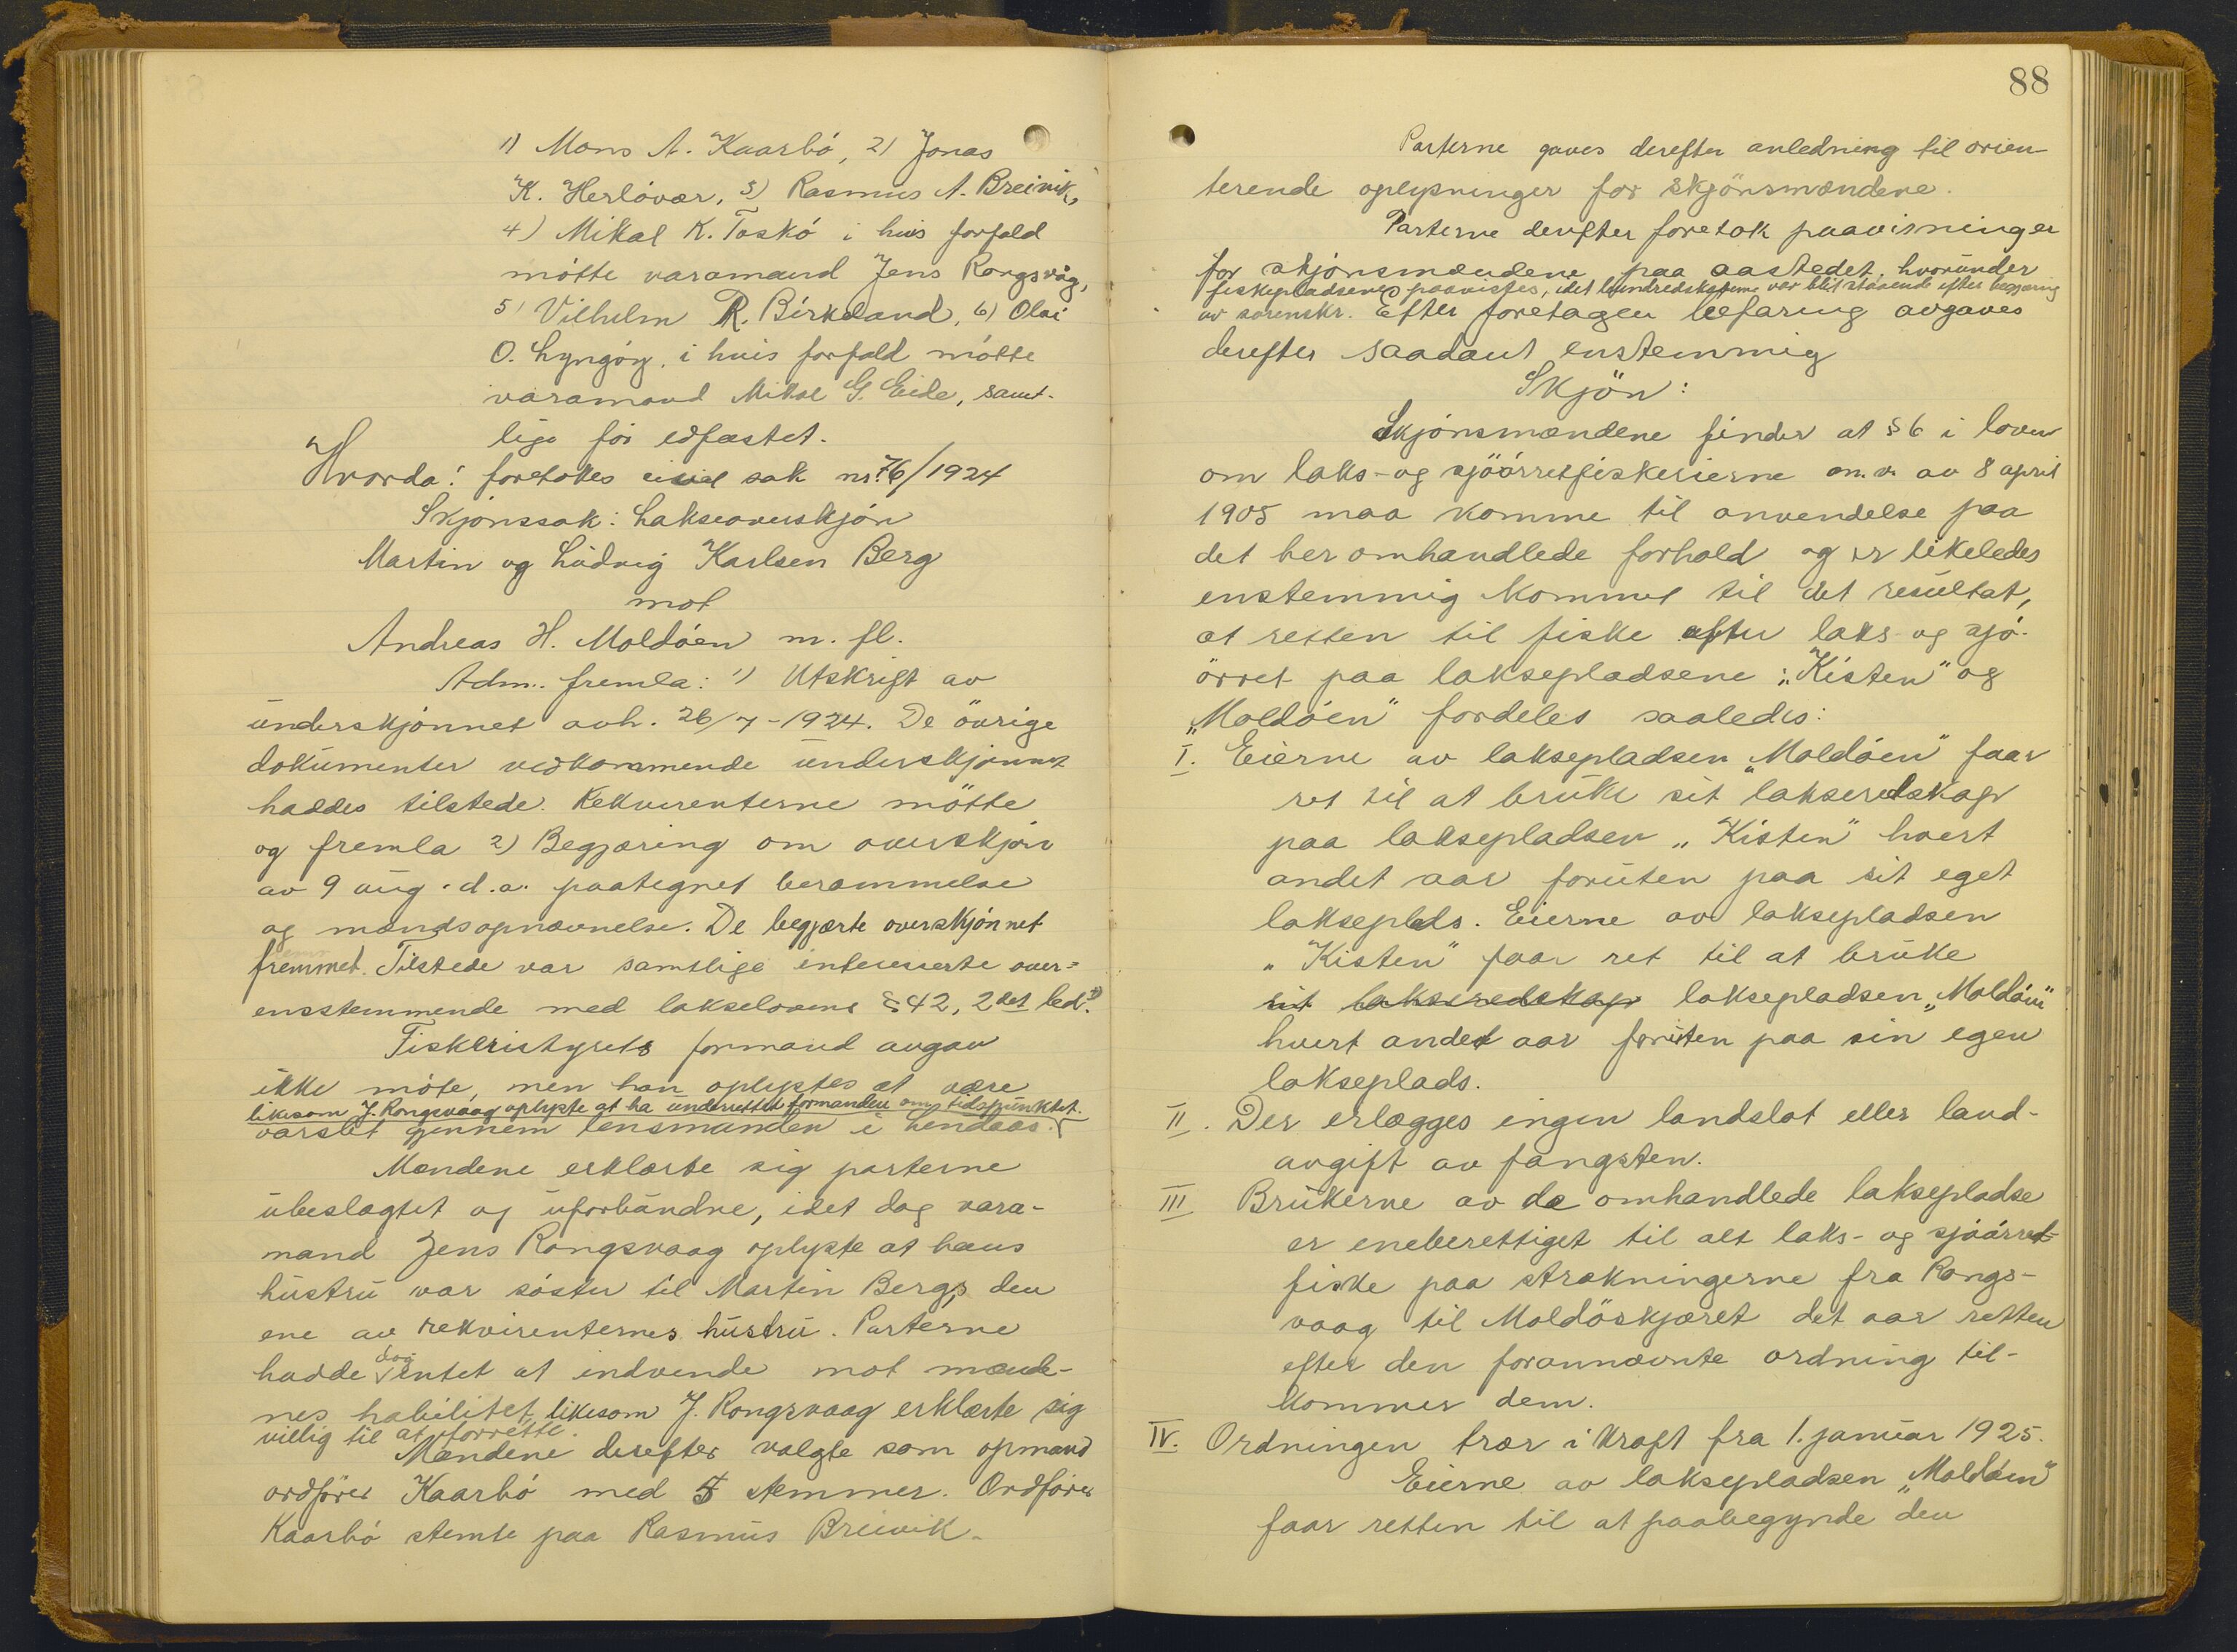 1) Mons A. Kaarbó, 2) Jonas
K. Herlóvær, 3) Rasmus A. Breivik,
4) Mikal K. Toskó i hvis forfald
mótte varamand Jens Rongsvåg,
5) Vilhelm R. Birkeland, 6) Olai
O. Lyngöy, i hvis forfald mótte
varamand Mikal G. Eide, samt-
lige fór edfæstet.
Hvorda: foretokes civil sak nr. 76/1924
Skjónssak: Lakseoverskjón
Martin og Ludvig Karlsen Berg
mot
Andreas H. Moldóen m. fl.
Adm. fremla: 1) Utskrift av
underskjónnet avh. 26/7-1924. De övrige
dokumenter vedkommende underskjónnet
haddes tilstede. Rekvirenterne mötte
og fremla 2) Begjæring om overskjón
av 9 aug. d.a. paategnet berammelse
og mandsopnævnelse. De begjærte overskjónnet
fremmet. Tilstede var samtlige interesserte over-
ensstemmende med lakselovens § 42, 2det led.
Fiskeristyrets formand avgav
ikke móte, men han oplystes at være
likesom J. Rongsvaag oplyste at ha underrettet formanden om tidspunktet.
varslet gjennem lensmanden i Lindaas.
Mændene erklærte sig parterne
ubeslægtet og uforbundne, idet dog vara-
mand Jens Rongsvaag oplyste at hans
hustru var sóster til Martin Bergs, den
ene av rekvirenternes hustru. Parterne
hadde dog intet at indvende mot mænde-
nes habilitet, likesom J. Rongsvaag erklærte sig
villig til at forrette.
Mændene derefter valgte som opmand
ordfórer Kaarbó med 5 stemmer. Ordfórer
Kaarbó stemte paa Rasmus Breivik.
88
Parterne gaves derefter anledning til orien-
terende oplysninger for skjönsmændene.
Parterne derefter foretok paavisninger
for skjónsmændene paa aastedet, hvorunder
fiskepladsene paavistes, idet
av sorenskr. Efter foretagen befaring avgaves
derefter saadant enstemmig
Skjön:
Skjónsmændene finder at § 6 i loven
om laks- og sjöórretfiskerierne m. v. av 8 april
1905 maa komme til anvendelse paa
det her omhandlede forhold og er likeledes
enstemmig kommet til det resultat,
at retten til fiske efter laks- og sjó-
örret paa laksepladsene: "Kisten" og
"Moldóen" fordeles saaledes:
I. Eierne av laksepladsen "Moldóen" faar
ret til at bruke sit lakseredskap
paa laksepladsen "Kisten" hvert
andet aar foruten paa sit eget
lakseplads. Eierne av laksepladsen
"Kisten" faar ret til at bruke
sit lakseredskap laksepladsen "Moldóen"
hvert andet aar foruten paa sin egen
lakseplads.
II. Der erlægges ingen landslot eller land-
avgift av fangsten.
III Brukerne av de omhandlede laksepladse
er eneberettiget til alt laks- og sjóórret-
fiske paa strækningerne fra Rongs-
vaag til Moldöskjæret det aar retten
efter den forannævnte ordning til-
kommer dem.
IV. Ordningen trær i kraft fra 1. januar 1925.
Eierne av laksepladsen "Moldóen"
faar retten til at paabegynde den